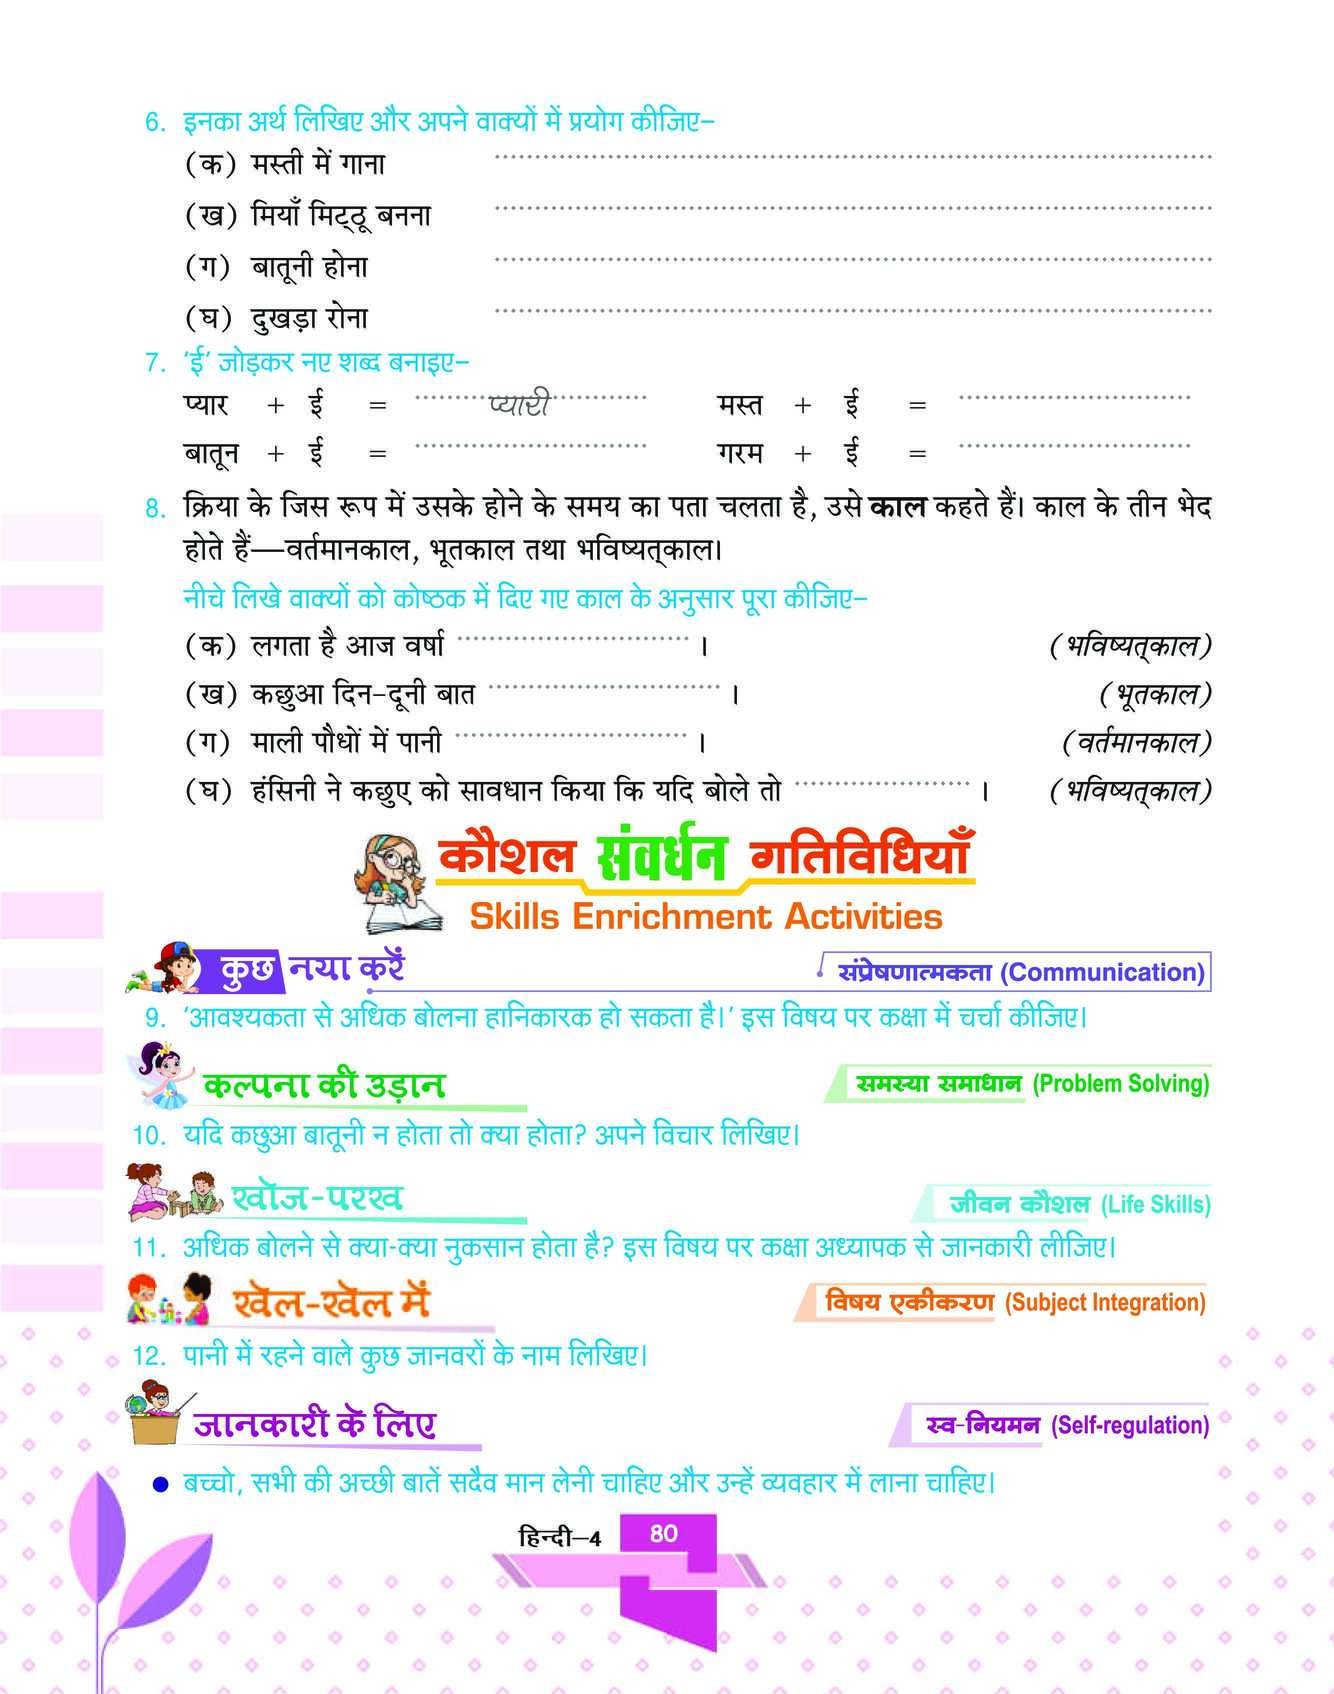 6. इनका अर्थ लिखिए और अपने वाक्यों में प्रयोग कीजिए–
(क) मस्ती में गाना
(ख) मियाँ मिट्ठू बनना
(ग) बातूनी होना
(घ) दुखड़ा रोना
7. ‘ई’ जोड़कर नए शब्द बनाइए–
प्यार + ई = प्यारी मस्त + ई =
बातून + ई = गरम + ई =
8. क्रिया के जिस रूप में उसके होने के समय का पता चलता है, उसे काल कहते हैं। काल के तीन भेद
होते हैं—वर्तमानकाल, भूतकाल तथा भविष्यत्काल।
नीचे लिखे वाक्यों को कोष्ठक में दिए गए काल के अनुसार पूरा कीजिए–
(क) लगता है आज वर्षा । (भविष्यत्काल)
(ख) कछुआ दिन-दूनी बात । (भूतकाल)
(ग) माली पौधों में पानी । (वर्तमानकाल)
(घ) हंसिनी ने कछुए को सावधान किया कि यदि बोले तो । (भविष्यत्काल)
कौशल संवर्धन गतिविधियाँ
Skills Enrichment Activities
कुछ नया करें संप्रेषणात्मकता (Communication)
9. ‘आवश्यकता से अधिक बोलना हानिकारक हो सकता है।’ इस विषय पर कक्षा में चर्चा कीजिए।
कल्पना की उड़ान समस्या समाधान (Problem Solving)
10. यदि कछुआ बातूनी न होता तो क्या होता? अपने विचार लिखिए।
खोज-परख जीवन कौशल (Life Skills)
11. अधिक बोलने से क्या-क्या नुकसान होता है? इस विषय पर कक्षा अध्यापक से जानकारी लीजिए।
खेल-खेल में विषय एकीकरण (Subject Integration)
12. पानी में रहने वाले कुछ जानवरों के नाम लिखिए।
जानकारी के लिए स्व-नियमन (Self-regulation)
● बच्चो, सभी की अच्छी बातें सदैव मान लेनी चाहिए और उन्हें व्यवहार में लाना चाहिए।
हिन्दी–4 80